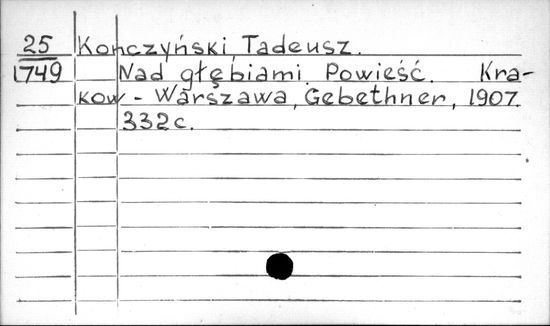 25 Konczyński, Tadeusz.
1749 Nad głębiami. Powieść. Kra-
kow - Warszawa, Gebethner, 1907.
332 c.